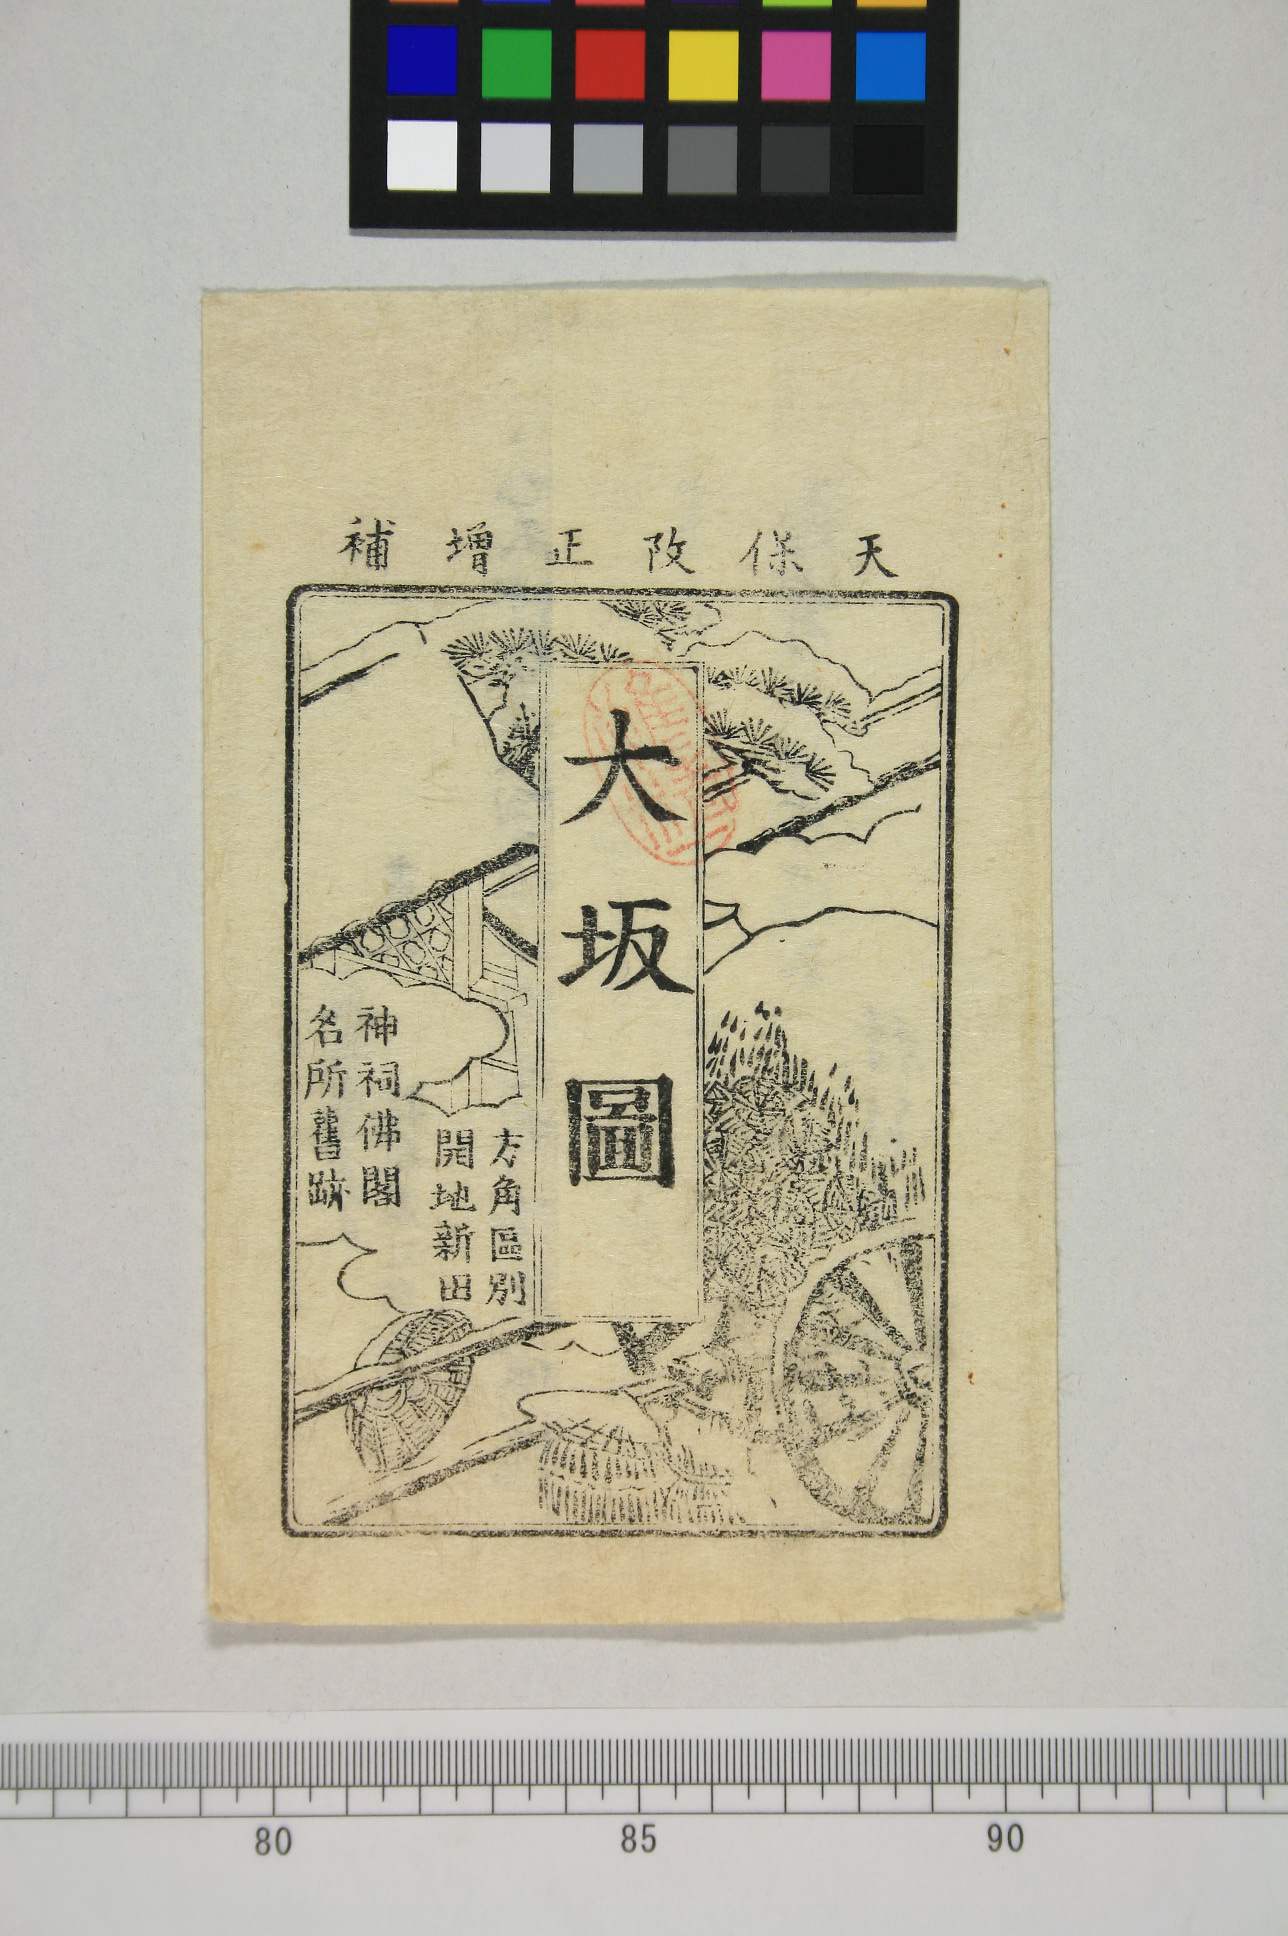 天保改正増補
大坂圖
方角區別
開地新田
神祠佛閣
名所舊跡
80 85 90